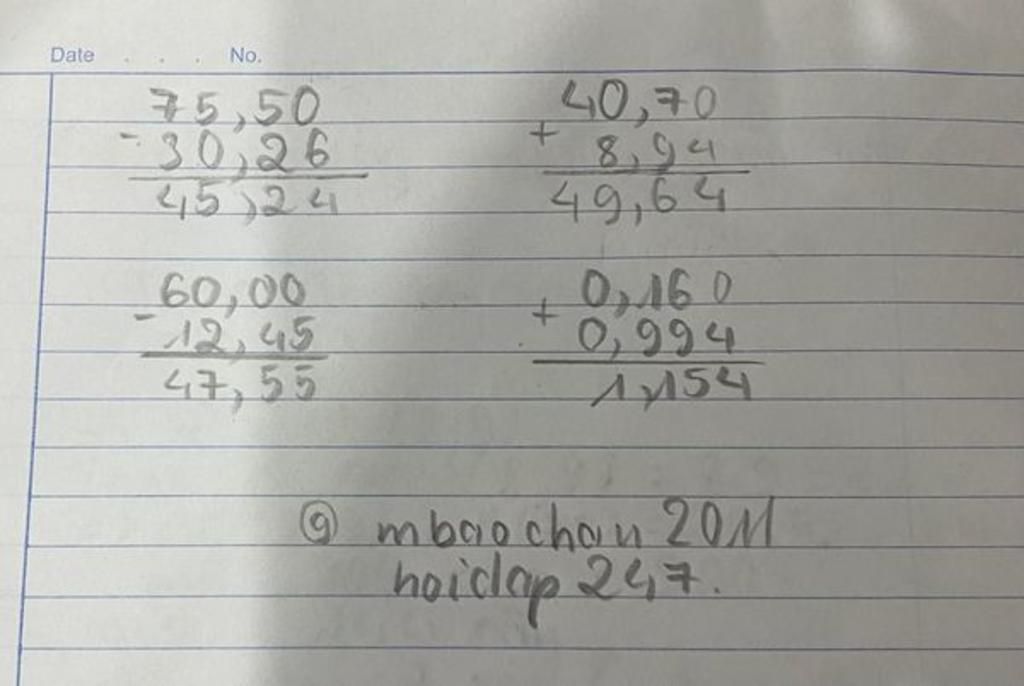 Date . . . No.
75,50
- 30,26
45,24
40,70
+ 8,94
49,64
60,00
- 12,45
47,55
0,160
+ 0,994
1,154
@ mbaochau 2011
hoidap 247.